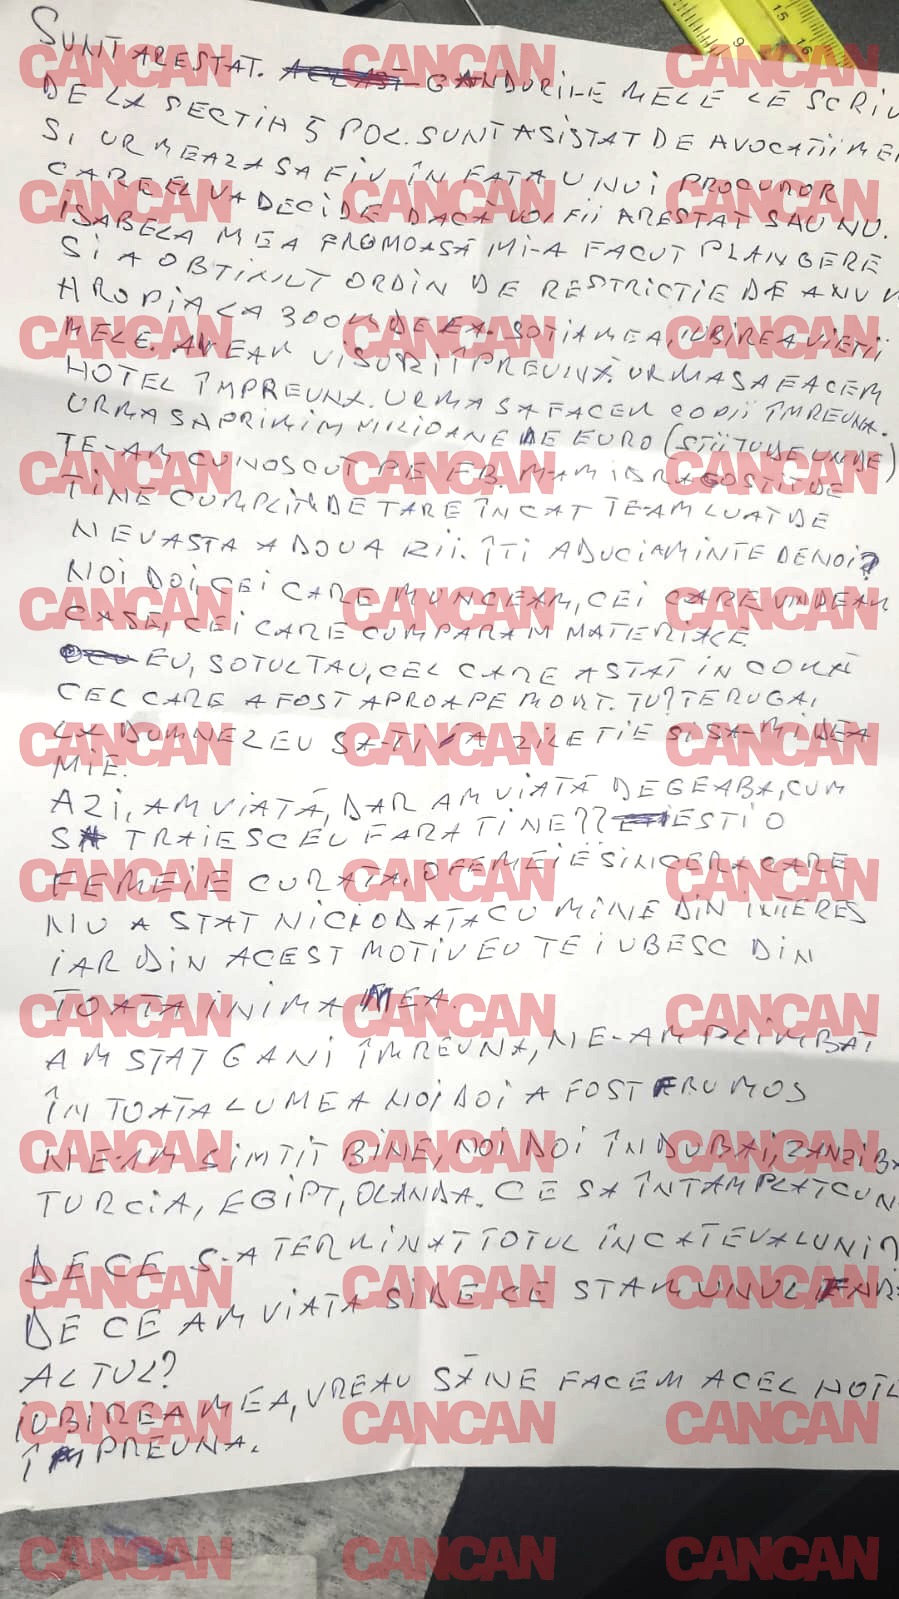 SUNT ARESTAT. GANDURILE MELE LE SCRIU
DE LA SECTIA 5 POL. SUNT ASISTAT DE AVOCATII MEI
SI URMEAZA SA FIU ÎN FATA UNUI PROCUROR
CARE EL VA DECIDE DACĂ VOI FII ARESTAT SAU NU.
ISABELA MEA FRUMOASĂ MI-A FACUT PLANGERE
SI A OBTINUT ORDIN DE RESTRICTIE DE A NU
AROPIA LA 300M DE EA. SOTIA MEA, IUBIREA VIETII
MELE. AVEAM VISURI ÎPREUNĂ. URMA SA FACEM
HOTEL ÎMPREUNA. URMA SA FACEM COPII ÎMPREUNA.
URMA SA PRIMIM MILIOANE DE EURO (STII TU DE UNDE)
TE-AM CUNOSCUT PE FB. M-AM IDRAGOSTIT DE
TINE CUMPLIT DE TARE ÎNCAT TE-AM LUAT DE
NEVASTA A DOUA ZII. ÎTI ADUCI AMINTE DE NOI?
NOI DOI, CEI CARE MUNCEAM, CEI CARE VINDEAM
CASE, CEI CARE CUMPARAM MATERIALE.
EU, SOTUL TAU, CEL CARE A STAT IN COMĂ
CEL CARE A FOST APROAPE MORT. TU? TE RUGAI
LA DUMNEZEU SA-TI IA ZILE TIE SI SA-MI DEA
MIE.
AZI, AM VIATĂ, DAR AM VIATĂ DEGEABA, CUM
SA TRAIESC EU FARA TINE?? ESTI O
FEMEIE CURATA, O FEMEIE SINCERA CARE
NU A STAT NICIODATA CU MINE DIN INTERES
IAR DIN ACEST MOTIV EU TE IUBESC DIN
TOATA INIMA MEA.
AM STAT 6 ANI ÎMREUNA, NE-AM PLIMBAT
ÎN TOATA LUMEA NOI DOI A FOST FRUMOS
NE-AM SIMTIT BINE, NOI DOI ÎN DUBAI, ZANZIBA
TURCIA, EGIPT, OLANDA. CE SA ÎNTAMPLAT CU N
DE CE S-A TERMINAT TOTUL ÎN CATEVA LUNI?
DE CE AM VIATA SI DE CE STAM UNUL FAR
ALTUL?
IUBIREA MEA, VREAU SĂ NE FACEM ACEL HOTEL
ÎMPREUNA.
CANCAN